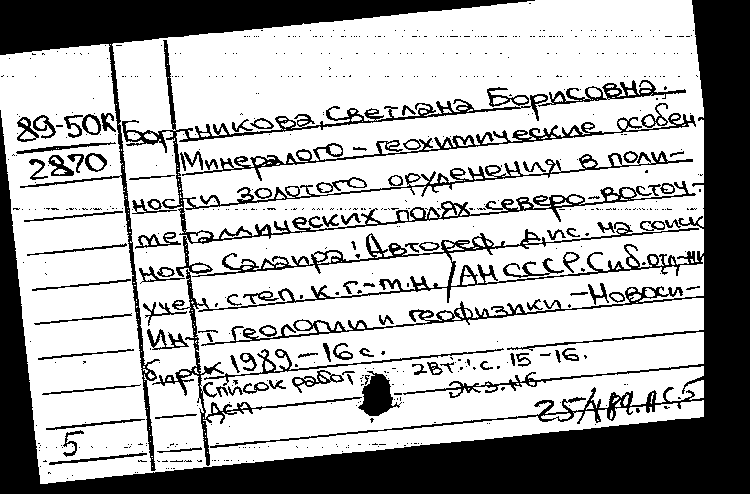 89-50К
2870
Бортникова, Светлана Борисовна.
Минералого-геохимические особен-
ности золотого оруденения в поли-
металлических полях северо-восточ-
ного Салаира: Автореф. дис. на соиск
учен. степ. к. г.-м.н. / АН СССР. Сиб. отд-ни
Ин-т геологии и геофизики. - Новоси-
бирск, 1989. - 16 с.
Список работ
с. 15-16.
Дсп.
Экз. №6.
5